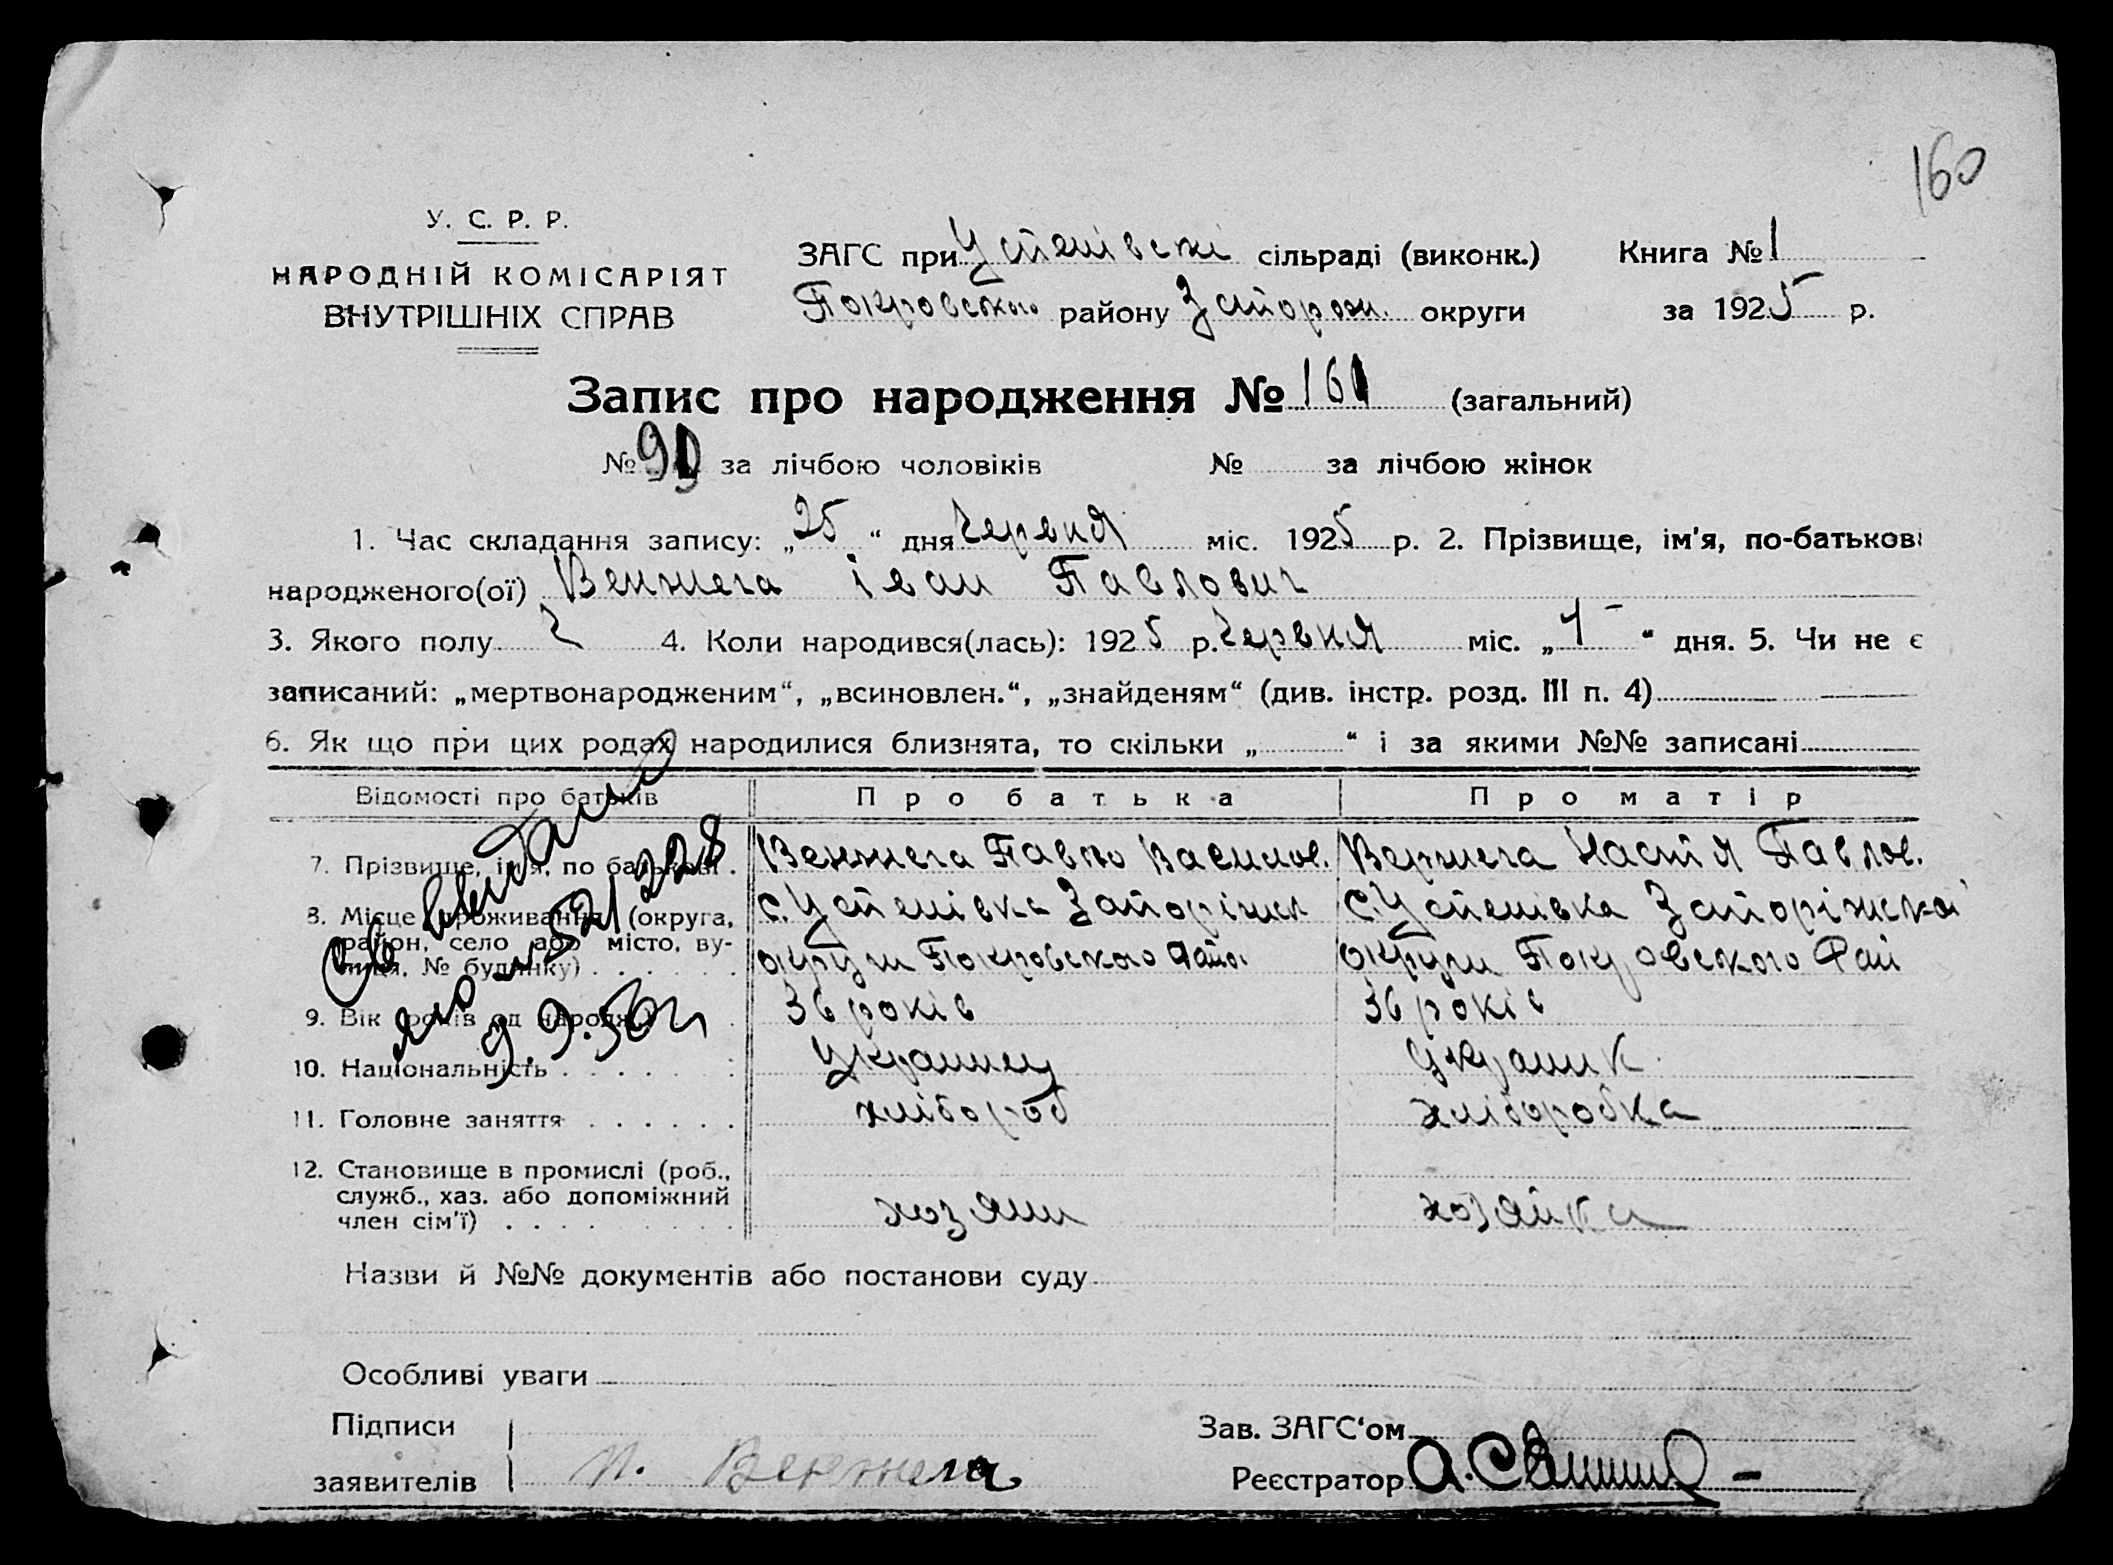 160
У. С. Р. Р.
НАРОДНІЙ КОМІСАРІЯТ
ВНУТРІШНІХ СПРАВ
ЗАГС при Успенівскі сільраді (виконк.) Книга № 1
Покровського району Запорож. округи за 1925 р.
Запис про народження № 161 (загальний)
№ за лічбою чоловіків № за лічбою жінок
1. Час складання запису: „25" дня Червня міс. 1925 р. 2. Прізвище, ім'я, по-батькові
народженого(ої) Венжега Іван Павлович
3. Якого полу Ч 4. Коли народився(лась): 1925 р. Червня міс. „1" дня. 5. Чи не є
записаний: „мертвонародженим", „всиновлен.", „знайденям" (див. інстр. розд. III п. 4)
6. Як що при цих родах народилися близнята, то скільки „ " і за якими №№ записані
Відомості про батьків Про батька Про матір
7. Прізвище, ім'я, по батькові. Венжега Павло Василов. Венжега Настя Павлов.
8. Місце проживання (округа, с. Успенівка Запоріжск с. Успенівка Запоріжскої
район, село або місто, ву- округи Покровского округи Покровского Рай
лиця, № будинку)
9. Вік років од народж. 36 років 36 років
10. Національність Украинец Украинк
11. Головне заняття хлібороб хліборобка
12. Становище в промислі (роб.,
служб., хаз. або допоміжний
член сім'ї) хозяин хозяйка
9.9.50г
Назви й №№ документів або постанови суду
Особливі уваги
Підписи Зав. ЗАГС'ом
заявителів П. Венжега Реєстратор